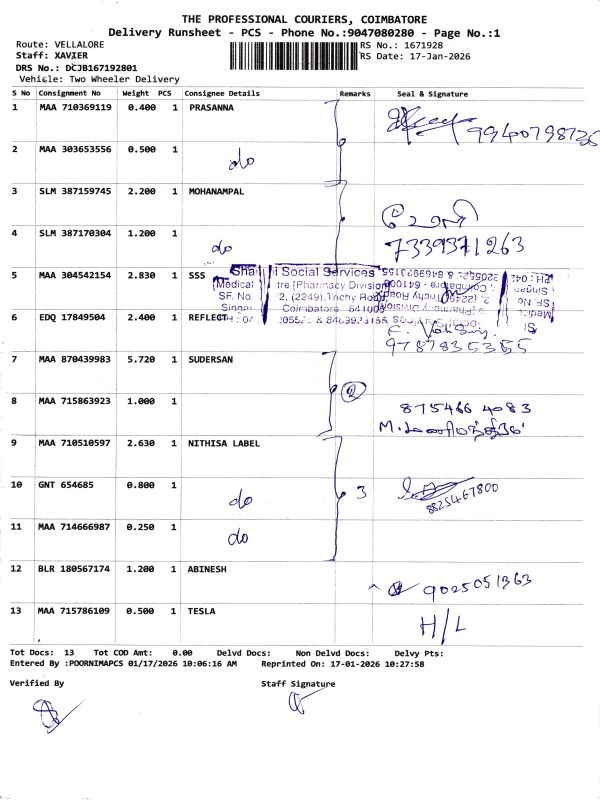 THE PROFESSIONAL COURIERS, COIMBATORE
Delivery Runsheet - PCS - Phone No.:9047080280 - Page No.:1
Route: VELLALORE
RS No.: 1671928
Staff: XAVIER
RS Date: 17-Jan-2026
DRS No.: DCJB167192801
Vehicle: Two Wheeler Delivery
S No Consignment No Weight PCS Consignee Details Remarks Seal & Signature
1 MAA 710369119 0.400 1 PRASANNA
9940798736
2 MAA 303653556 0.500 1 do
3 SLM 387159745 2.200 1 MOHANAMPAL
4 SLM 387170304 1.200 1 do 7339371263
5 MAA 304542154 2.830 1 SSS
Social Services
Medical
(Pharmacy Division)
SF. No. 2, (2249), Trichy Road
Coimbatore 641005
6 EDQ 17849504 2.400 1 REFLECT
9787835355
7 MAA 870439983 5.720 1 SUDERSAN
2
8 MAA 715863923 1.000 1 875466 4083
9 MAA 710510597 2.630 1 NITHISA LABEL
10 GNT 654685 0.800 1 do 3 8825467800
11 MAA 714666987 0.250 1 do
12 BLR 180567174 1.200 1 ABINESH 9025051363
13 MAA 715786109 0.500 1 TESLA H/L
Tot Docs: 13 Tot COD Amt: 0.00 Delvd Docs: Non Delvd Docs: Delvy Pts:
Entered By :POORNIMAPCS 01/17/2026 10:06:16 AM Reprinted On: 17-01-2026 10:27:58
Verified By Staff Signature